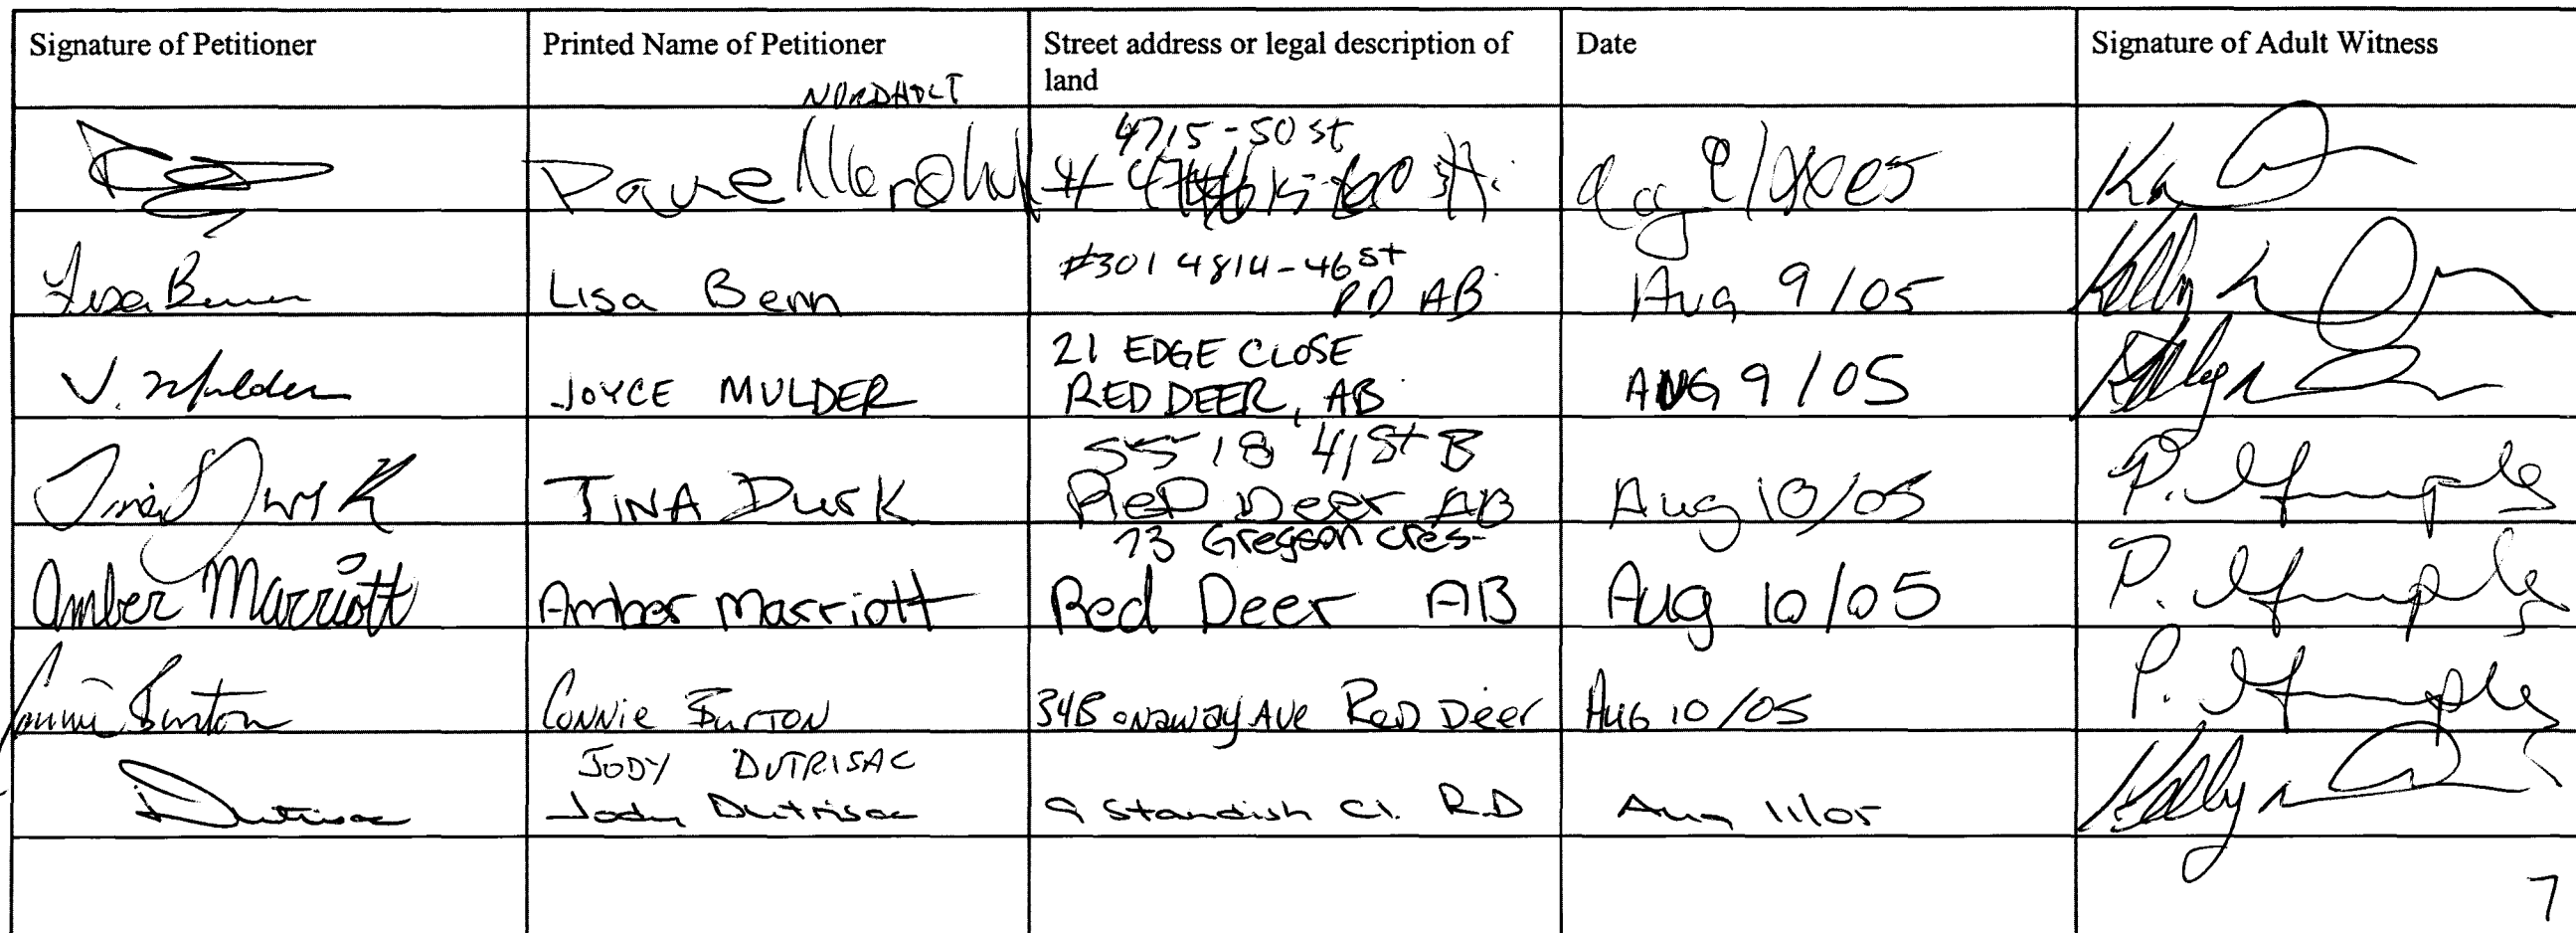 Signature of Petitioner
Printed Name of Petitioner
Street address or legal description of
land
Date
Signature of Adult Witness
NORDHOLT
4715-50 st
Lisa Benn
Lisa Benn
#301 4814-46 st
RD AB
Aug 9/05
Kelly
J. Mulder
JOYCE MULDER
21 EDGE CLOSE
RED DEER, AB
AUG 9/05
Kelly
Tina Durk
TINA Durk
5518 41 St B
RED Deer AB
Aug 10/05
P.
Amber Marriott
Amber Marriott
73 Greyson cres
Red Deer AB
Aug 10/05
P.
Connie Burton
Connie Burton
34B onaway Ave Red Deer
Aug 10/05
P.
Dutrisac
JODY DUTRISAC
Jody Dutrisac
9 Standish Cl. RD
Aug 11/05
Kelly
7